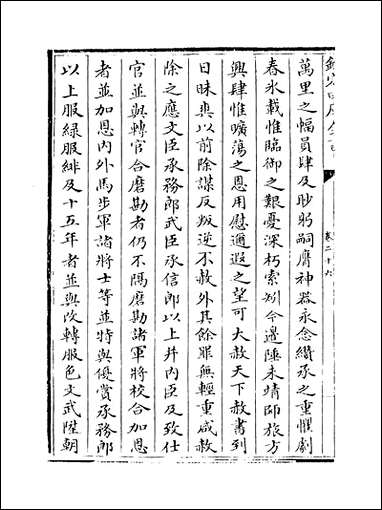 萬里之幅員肆及眇躬嗣膺神器永念纘承之重懼劇
春氷載惟臨御之艱憂深朽索矧今邊陲未靖師旅方
興肆惟曠蕩之恩用慰遐邇之望可大赦天下赦書到
日昧爽以前除謀反叛逆不赦外其餘罪無輕重咸赦
除之應文臣承務郎武臣承信郎以上并内臣及致仕
官並與轉官合磨勘者仍不隔磨勘諸軍將校合加恩
者並加恩内外馬步軍諸將士等並特與優賞承務郎
以上服緑服緋及十五年者並與改轉服色文武陞朝